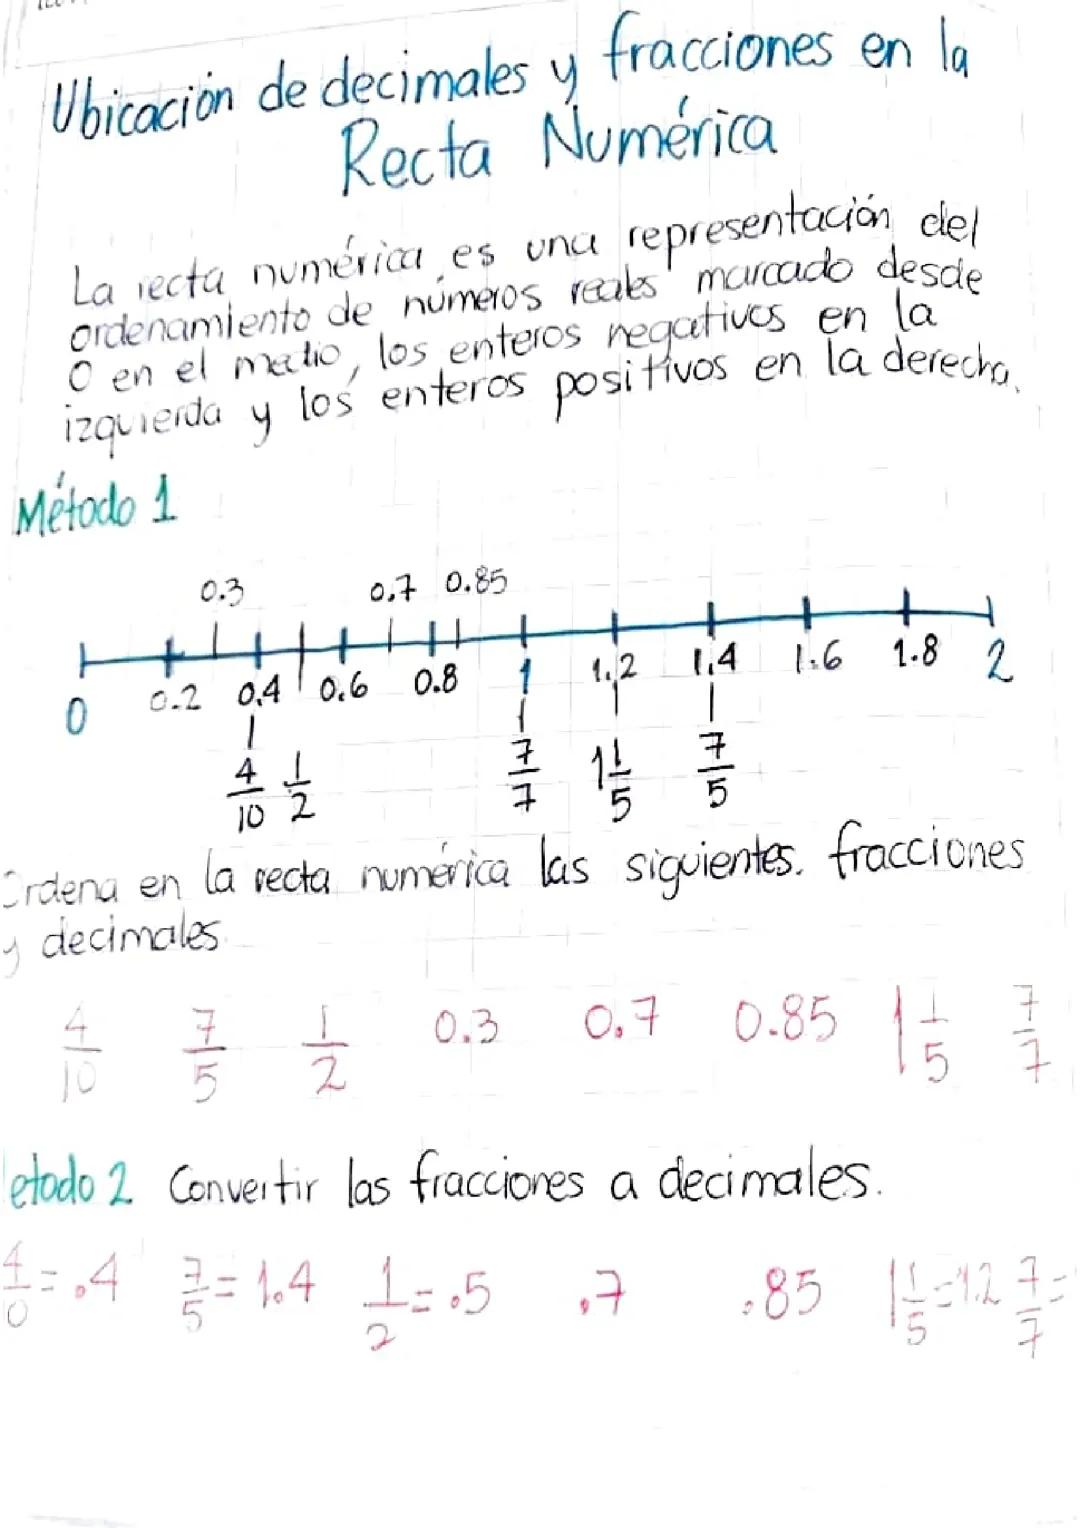 Ubicación de decimales y fracciones en la
Recta Numérica
La recta numérica es una representación del
ordenamiento de números reales marcado desde
0 en el medio, los enteros negativos en la
izquierda y los enteros positivos en la derecha.
Método 1
0.3 0.7 0.85
0 0.2 0.4 0.6 0.8 1 1.2 1.4 1.6 1.8 2
4/10 1/2 7/7 1 1/5 7/5
Ordena en la recta numérica las siguientes. fracciones
y decimales
4/10 7/5 1/2 0.3 0.7 0.85 1 1/5 7/7
etodo 2 Convertir las fracciones a decimales.
4/0 = .4 7/5 = 1.4 1/2 = .5 .7 .85 1 1/5 = 1.2 7/7 =